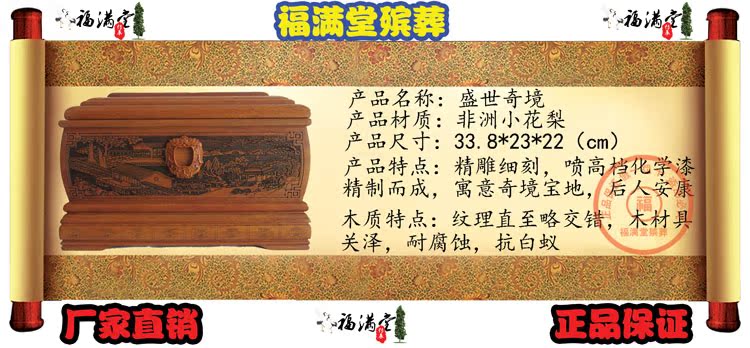 福满堂
福满堂殡葬
福满堂
产品名称：盛世奇境
产品材质：非洲小花梨
产品尺寸：33.8*23*22（cm）
产品特点：精雕细刻，喷高档化学漆
精制而成，寓意奇境宝地，后人安康
木质特点：纹理直至略交错，木材具
关泽，耐腐蚀，抗白蚁
福
福满堂殡葬
厂家直销
福满堂
正品保证